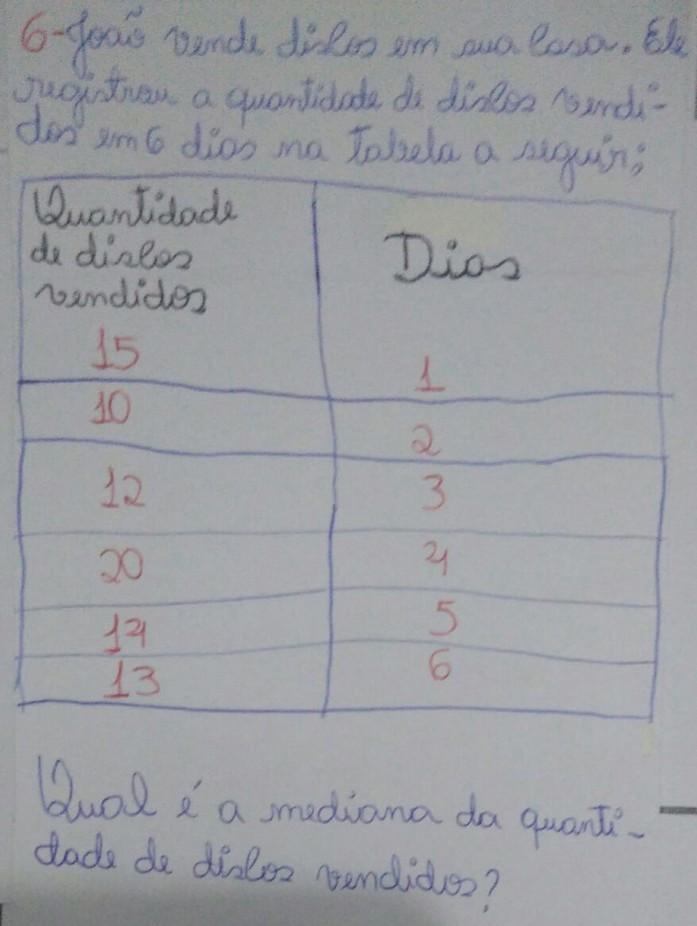 6-João vende discos em sua casa. Ele
registrou a quantidade de discos vendi-
dos em 6 dias na tabela a seguir:
Quantidade
de discos
vendidos
Dias
15 1
10 2
12 3
20 4
14 5
13 6
Qual é a mediana da quanti-
dade de discos vendidos?